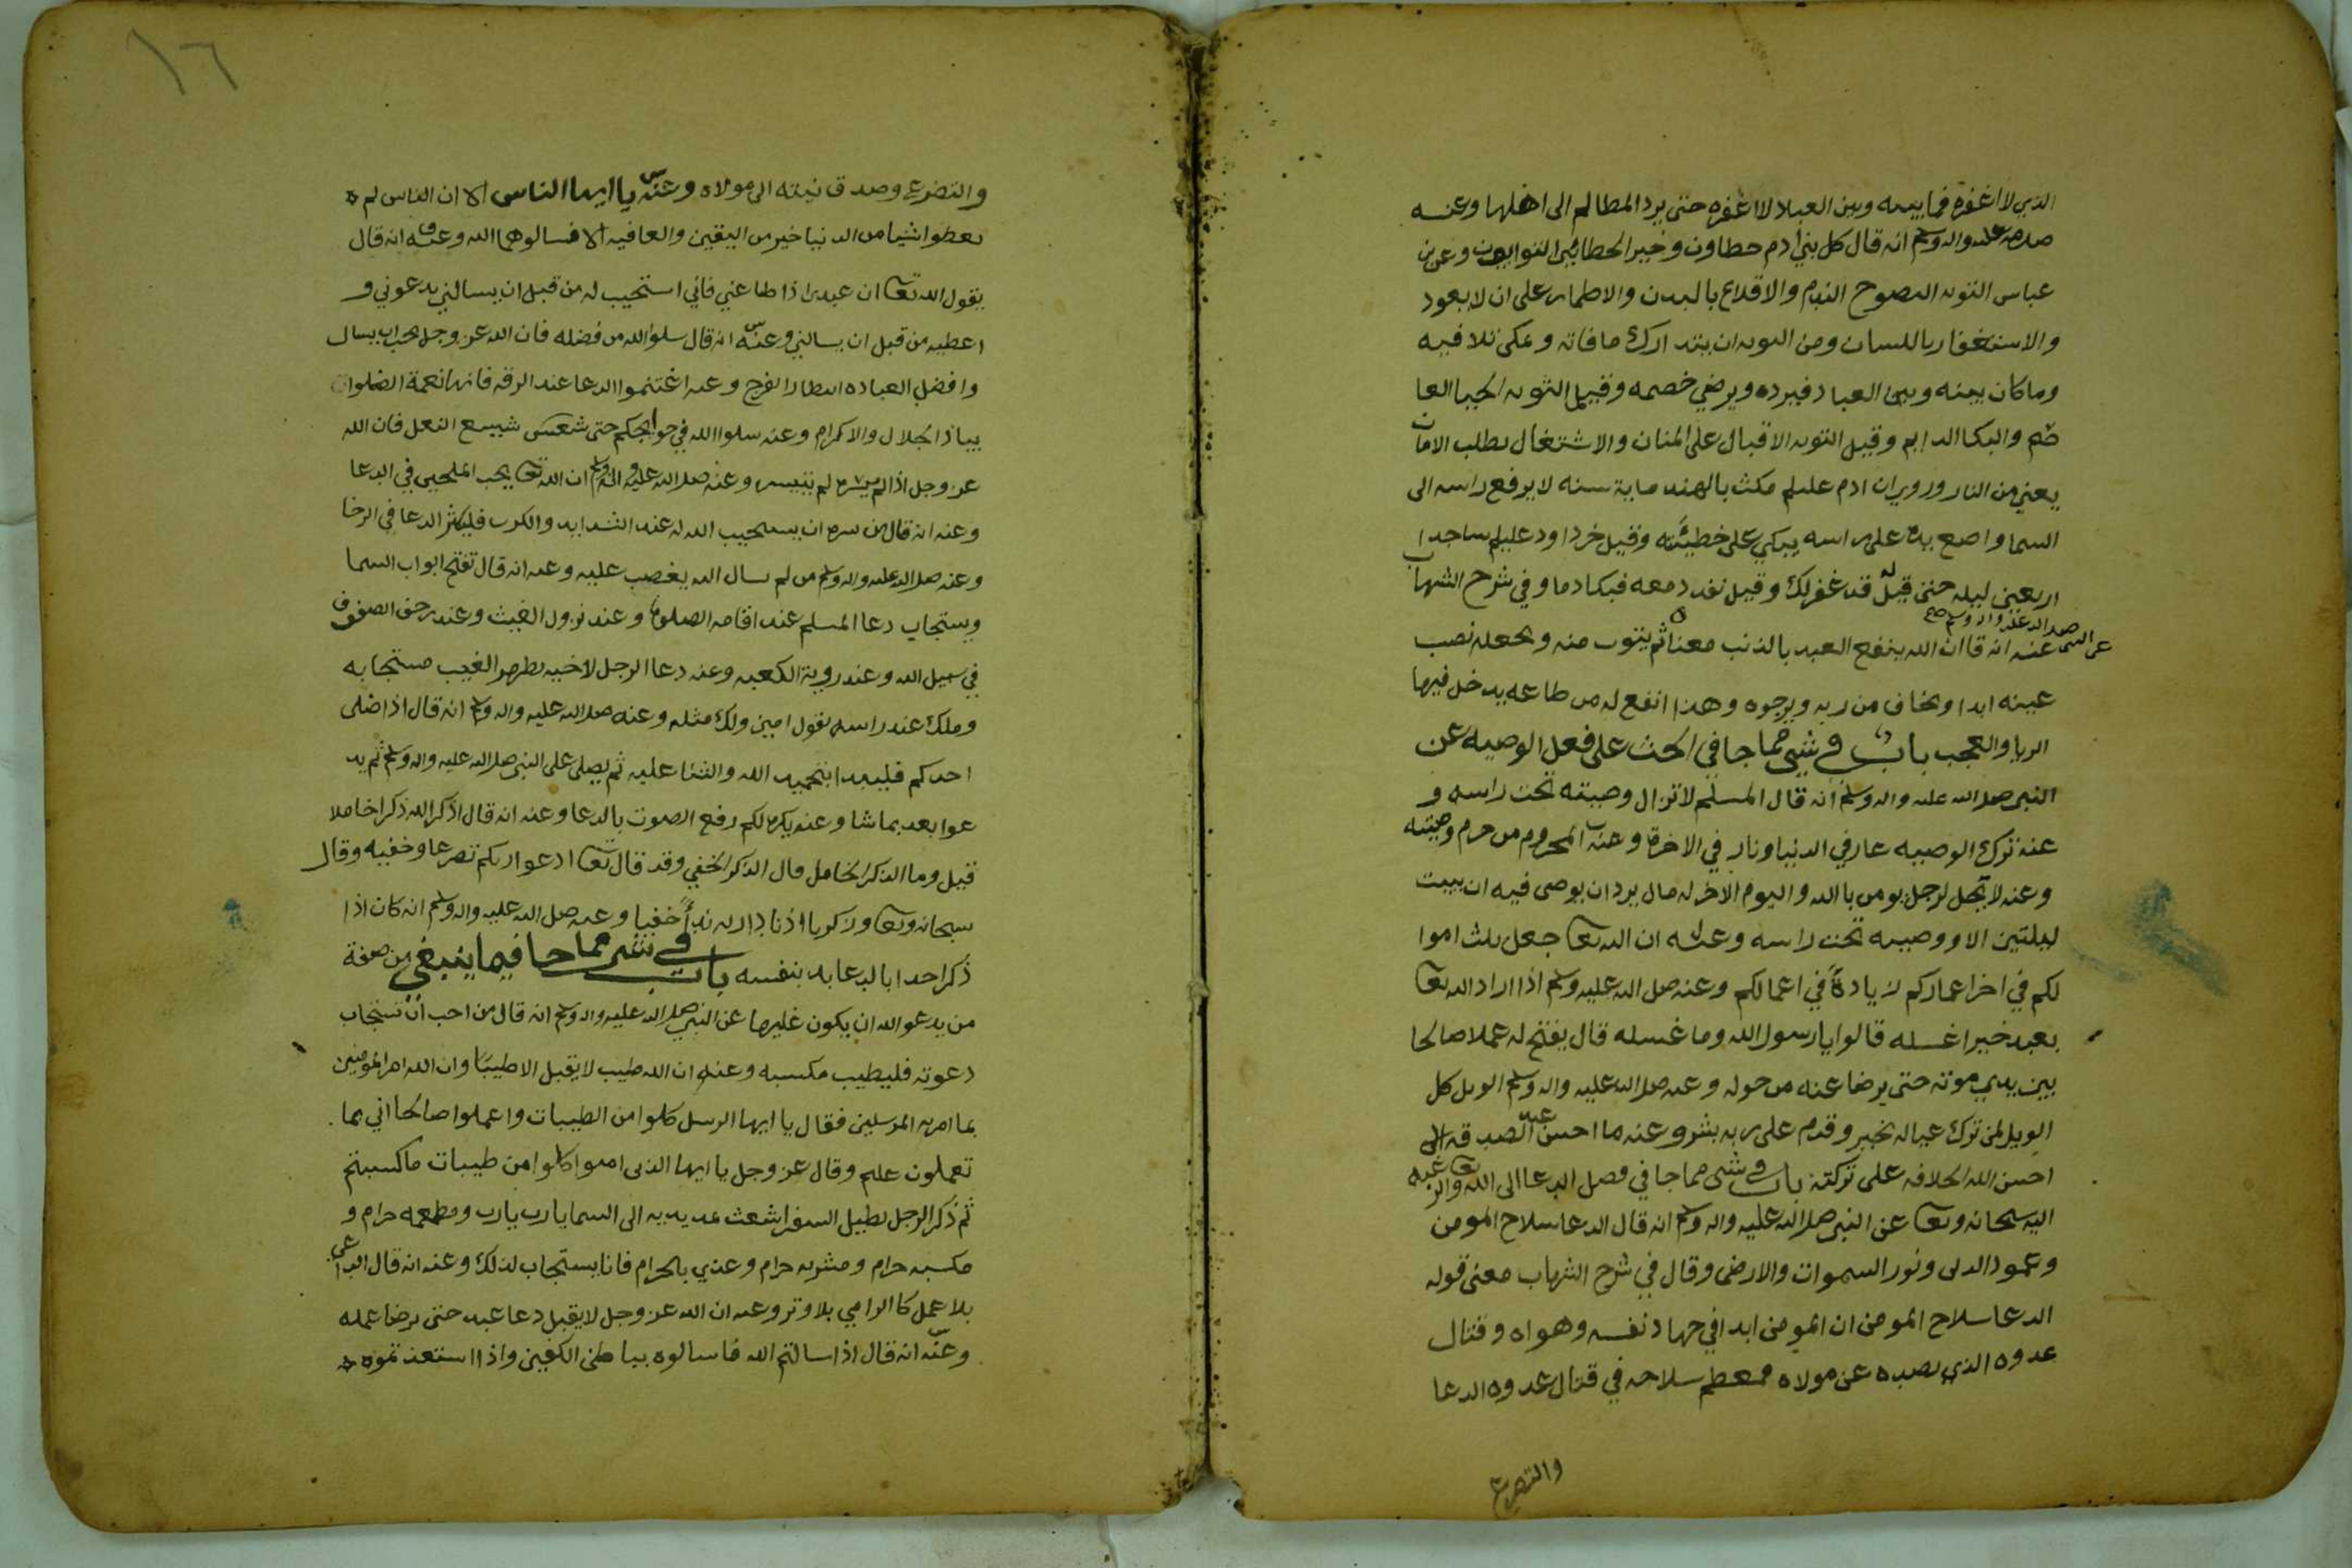 الذي لا اغفره فما بينه وبين العباد لا اغفره حتى يرد المظالم الى اهلها وعنه
صلى الله عليه واله وسلم انه قال كل بني ادم خطاون وخير الخطائين التوابون وعن بن
عباس التوبه النصوح الندم والاقلاع بالبدن والاظمار على ان لا يعود
والاستغفار باللسان ومن التوبه ان يتدارك ما فاته ويمكن تلافيه
وما كان بينه وبين العباد فيرده ويرضي خصمه وقيل التوبه الحيا العا
صم والبكا الدايم وقيل التوبه الاقبال على المنان والاشتغال بطلب الامان
يعني من النار وروي ان ادم عليلم مكث بالهند ماية سنه لا يرفع راسه الى
السما واضع يده على راسه يبكي على خطيئته وقيل خر داود عليلم ساجدا
اربعين ليله حتى قيل له قد غفر لك وقيل نفد دمعه فبكا دما وفي شرح الشهاب
عن النبي صلى الله عليه واله وسلم عنه انه قال ان الله ينفع العبد بالذنب معناه ثم يتوب منه ويجعله نصب
عينه ابدا ويخاف من ربه ويرجوه وهذا انفع له من طاعه يدخل فيها
الريا والعجب باب في شي مما جا في الحث على فعل الوصيه عن
النبي صلى الله عليه واله وسلم انه قال المسلم لا تزال وصيته تحت راسه و
عنه ترك الوصيه عار في الدنيا ونار في الاخرة وعنه المحروم من حرم وصيته
وعنه لا يحل لرجل يومن بالله واليوم الاخر له مال يريد ان يوصى فيه ان يبيت
ليلتين الا ووصيته تحت راسه وعنه ان الله تعا جعل ثلث اموا
لكم في اخر اعماركم زيادة في اعمالكم وعنه صلى الله عليه وسلم اذا اراد الله تعا
بعبد خيرا غسله قالوا يا رسول الله وما غسله قال يفتح له عملا صالحا
بين يدي موته حتى يرضا عنه من حوله وعنه صلى الله عليه واله وسلم الويل كل
الويل لمن ترك عياله بخير وقدم على ربه بشر وعنه ما احسن عبد الصدقه الى
احسن الله الخلافه على تركته باب في شي مما جا في فضل الدعا الى الله تعا والرغبه
اليه سبحانه وتعا عن النبي صلى الله عليه واله وسلم انه قال الدعا سلاح المومن
وعمود الدين ونور السموات والارض وقال في شرح الشهاب معنى قوله
الدعا سلاح المومن ان المومن ابدا في جهاد نفسه وهواه وقتال
عدوه الذي يصده عن مولاه فمعظم سلاحه في قتال عدوه الدعا
والتضرع
١٦
والتضرع وصدق نيته الى مولاه وعنه يا ايها الناس الا ان الناس لم
يعطوا شيا من الدنيا خير من اليقين والعافيه الا فسالوهما الله وعنه انه قال
يقول الله تعا ان عبدي اذا طاعني فاني استجيب له من قبل ان يسالني يدعوني و
اعطيه من قبل ان يسالني وعنه انه قال سلوا الله من فضله فان الله عز وجل يحب ان يسال
وافضل العباده انتظار الفرج وعنه اغتنموا الدعا عند الرقه فانها نعمة
بياذا الجلال والاكرام وعنه سلوا الله في حوايجكم حتى شسع النعل فان الله
عز وجل اذا لم ييسره لم يتيسر وعنه صلى الله عليه واله وسلم ان الله تعا يحب الملحين في الدعا
وعنه انه قال من سره ان يستجيب الله له عند الشدايد والكرب فليكثر الدعا في الرخا
وعنه صلى الله عليه واله وسلم من لم يسال الله يغضب عليه وعنه انه قال تفتح ابواب السما
ويستجاب دعا المسلم عند اقامه الصلوة وعند نزول الغيث وعند زحف الصفوف
في سبيل الله وعند روية الكعبه وعنه دعا الرجل لاخيه بظهر الغيب مستجابه
وملك عند راسه يقول امين ولك مثله وعنه صلى الله عليه واله وسلم انه قال اذا صلى
احدكم فليبدا بتحميد الله والثنا عليه ثم يصلي على النبي صلى الله عليه واله وسلم ثم يد
عوا بعد بما شا وعنه يكره لكم رفع الصوت بالدعا وعنه انه قال اذكر الله ذكرا خاملا
قيل وما الذكر الخامل قال الذكر الخفي وقد قال تعا ادعوا ربكم تضرعا وخفيه وقال
سبحانه وتعا وزكريا اذ نادا ربه نداً خفيا وعنه صلى الله عليه واله وسلم انه كان اذا
ذكر احدا بالدعا بدا بنفسه باب في شي مما جا فيما ينبغي من صفة
من يدعو الله ان يكون عليها عن النبي صلى الله عليه واله وسلم انه قال من احب ان تستجاب
دعوته فليطيب مكسبه وعنه ان الله طيب لا يقبل الا طيبا وان الله امر المومنين
بما امر به المرسلين فقال يا ايها الرسل كلوا من الطيبات واعملوا صالحا اني بما
تعملون عليم وقال عز وجل يا ايها الذين امنوا كلوا من طيبات ما كسبتم
ثم ذكر الرجل يطيل السفر اشعث يمد يديه الى السما يا رب يا رب ومطعمه حرام و
مكسبه حرام ومشربه حرام وغذي بالحرام فانا يستجاب لذلك وعنه انه قال الداعي
بلا عمل كا الرامي بلا وتر وعنه ان الله عز وجل لا يقبل دعا عبد حتى يرضا عمله
وعنه انه قال اذا سالتم الله فاسالوه بباطن الكفين واذا استعذتموه